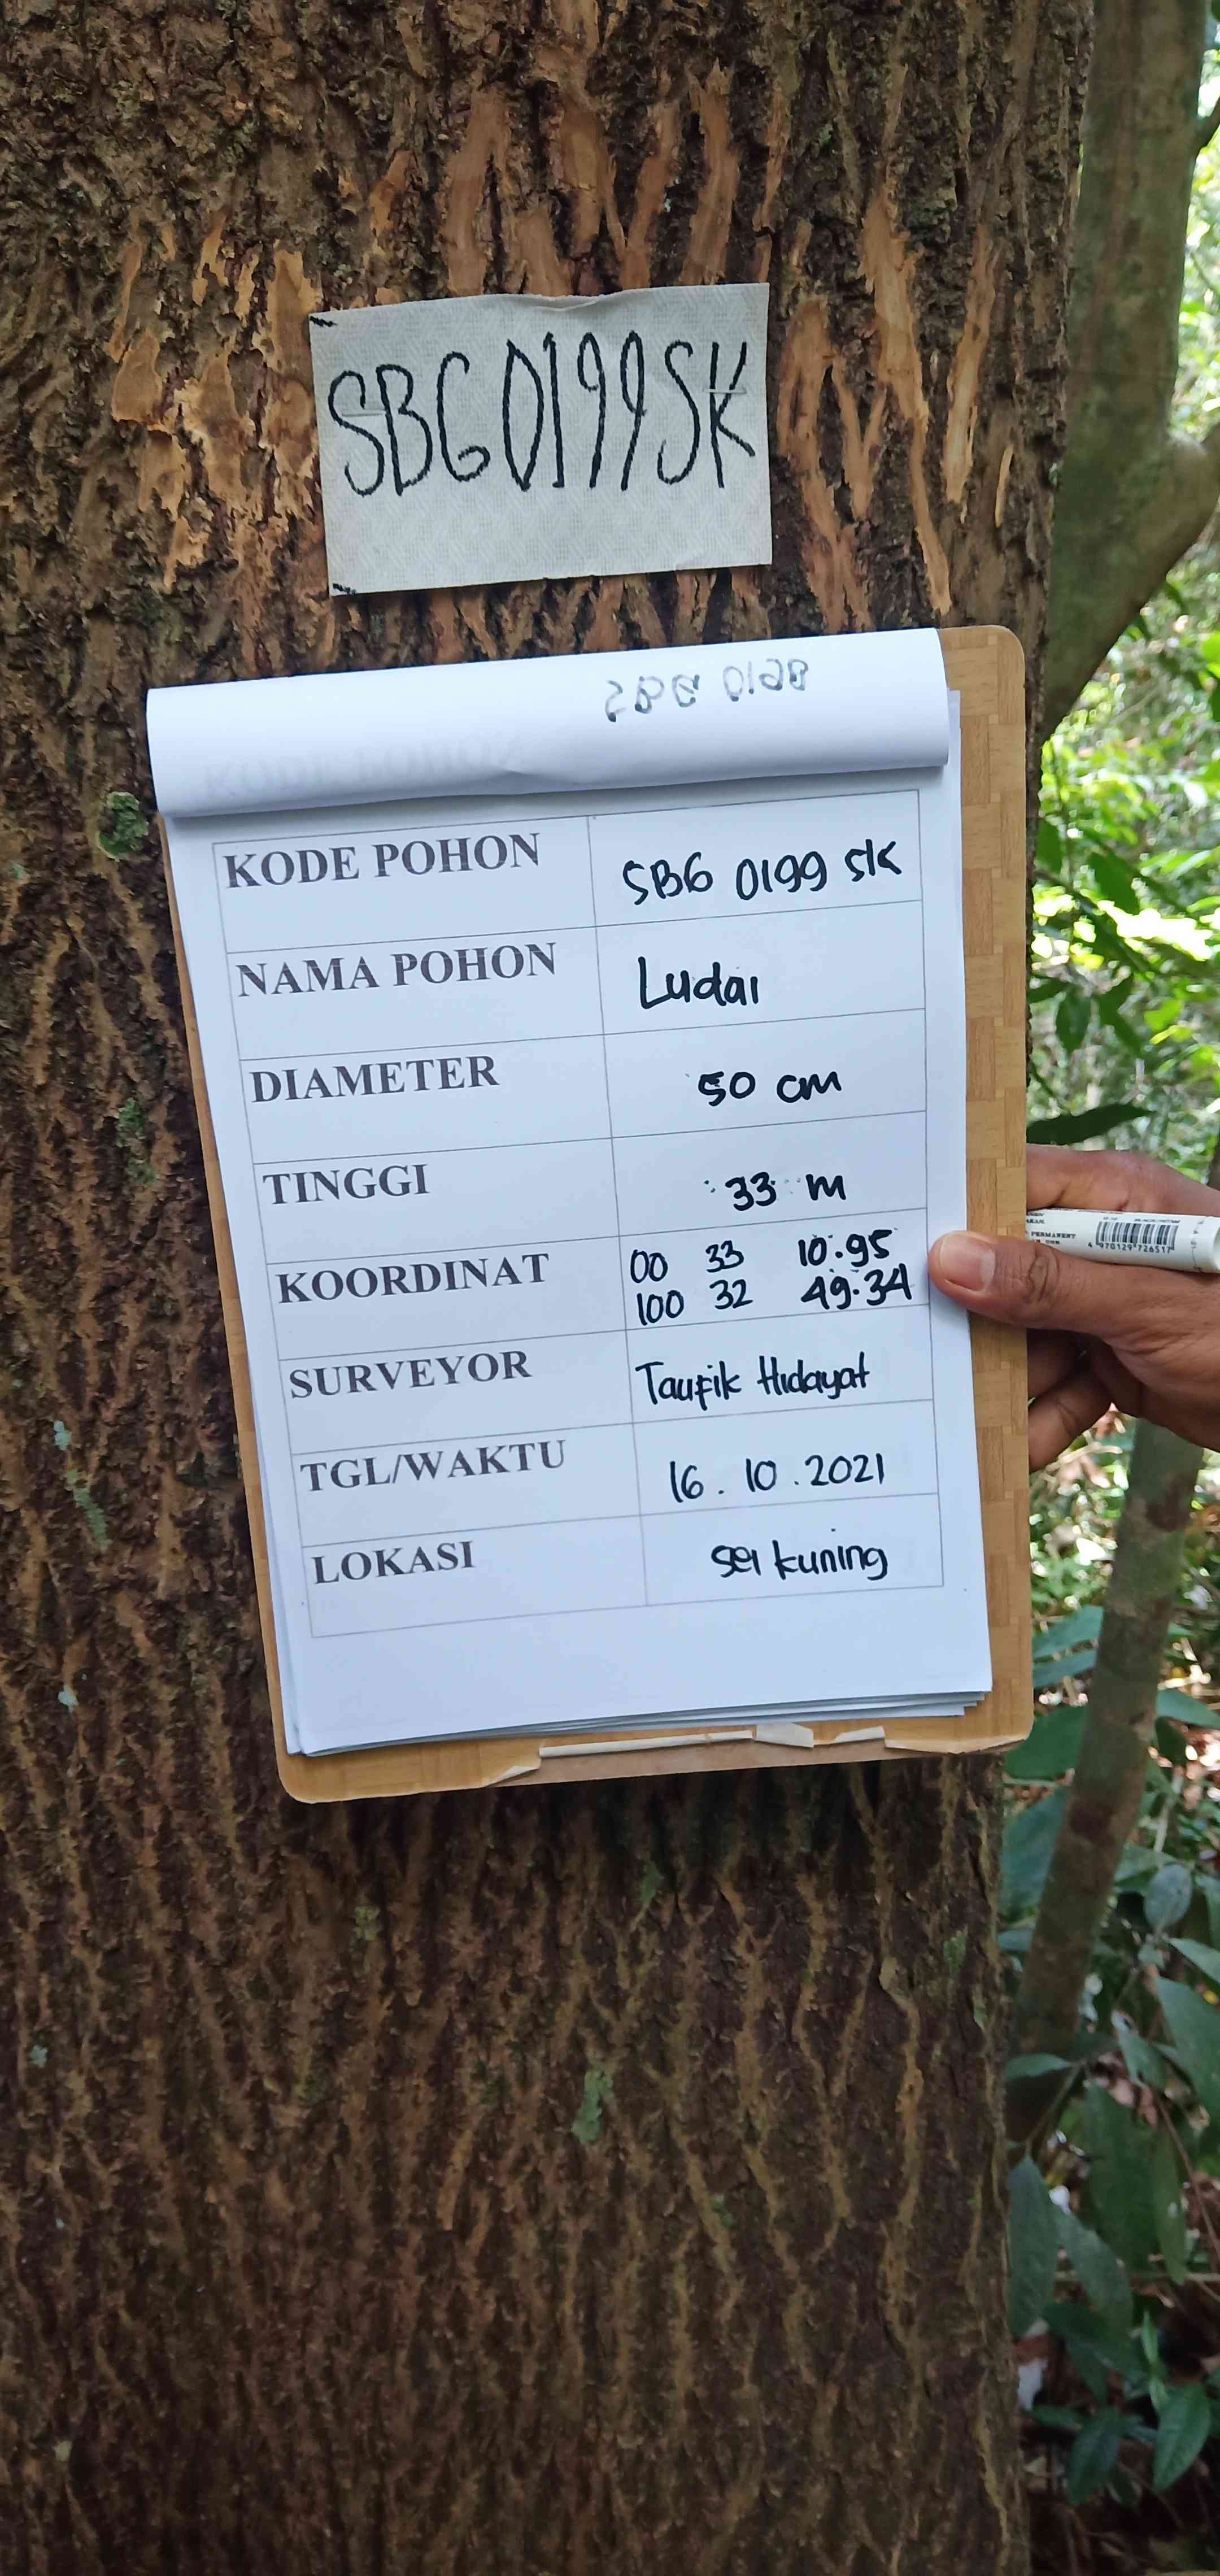 SBG0199SK
SBG 0198
KODE POHON
SBG 0199 SK
NAMA POHON
Ludai
DIAMETER
50 cm
TINGGI
33 m
KOORDINAT
00 33 10.95
100 32 49.34
SURVEYOR
Taufik Hidayat
TGL/WAKTU
16.10.2021
LOKASI
Sei kuning
PERMANENT
4 970129 726517